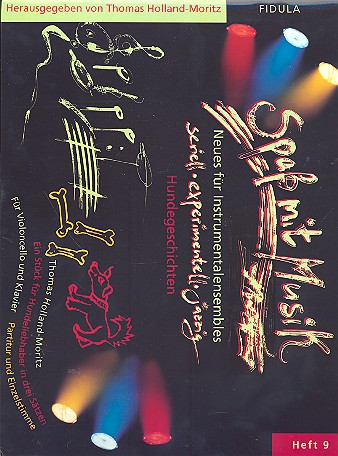 Herausgegeben von Thomas Holland-Moritz
FIDULA
Spaß mit Musik
Neues für Instrumentalensembles
seriell · experimentell · jazzig
Hundegeschichten
Thomas Holland-Moritz
Ein Stück für Hundeliebhaber in drei Sätzen
Für Violoncello und Klavier
Partitur und Einzelstimme
Heft 9